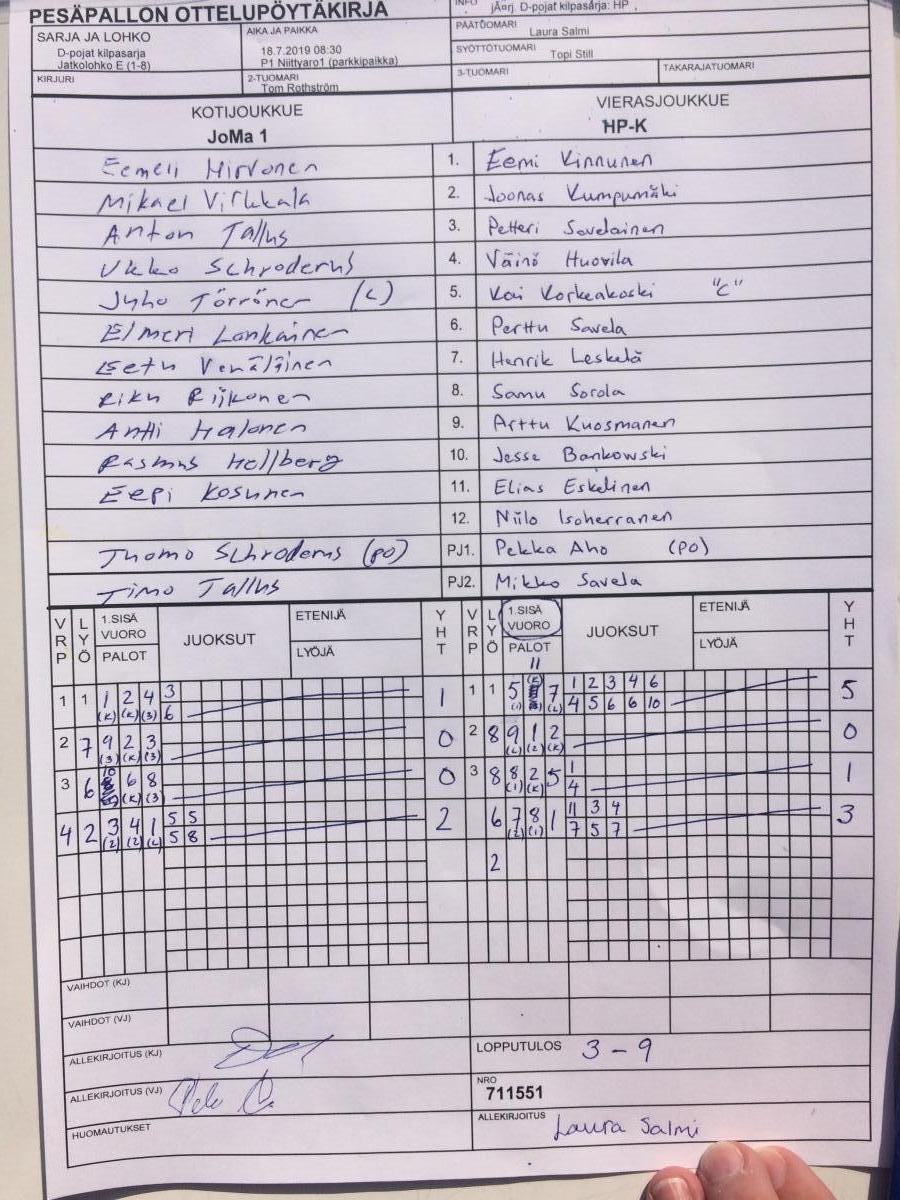 PESÄPALLON OTTELUPÖYTÄKIRJA
INFO jÄärj. D-pojat kilpasarja: HP ,
SARJA JA LOHKO
D-pojat kilpasarja
Jatkolohko E (1-8)
AIKA JA PAIKKA
18.7.2019 08:30
P1 Niittyaro1 (parkkipaikka)
PÄÄTUOMARI
Laura Salmi
SYÖTTÖTUOMARI
Topi Still
KIRJURI
2-TUOMARI
Tom Rothström
3-TUOMARI
TAKARAJATUOMARI
KOTIJOUKKUE
JoMa 1
VIERASJOUKKUE
HP-K
Eemeli Hirvonen 1. Eemi Kinnunen
Mikael Virkkala 2. Joonas Kumpumäki
Anton Tallus 3. Petteri Savelainen
Ukko Schroderus 4. Väinö Huovila
Juho Törrönen (C) 5. Kai Korkeakoski "C"
Elmeri Lankainen 6. Perttu Savela
Eetu Venäläinen 7. Henrik Leskelä
Riku Riikonen 8. Samu Sorola
Antti Halonen 9. Arttu Kuosmanen
Rasmus Hellberg 10. Jesse Bankowski
Eepi Kosunen 11. Elias Eskelinen
12. Niilo Isoherranen
Tuomo Schroderus (PO) PJ1. Pekka Aho (PO)
Timo Tallus PJ2. Mikko Savela
VRP LYÖ 1.SISÄ VUORO PALOT JUOKSUT ETENIJÄ LYÖJÄ YHT VRP LYÖ 1.SISÄ VUORO PALOT JUOKSUT ETENIJÄ LYÖJÄ YHT
11
1 1 1 2 4 3 1 1 1 5 (K) 7 1 2 3 4 6 5
(K) (K) (3) 6 (1) (L) 4 5 6 6 10
2 7 9 2 3 0 2 8 9 1 2 0
(3) (K) (3) (L) (2) (K)
3 6 10 6 8 0 3 8 8 2 5 1 1
(K) (3) (1) (K) 4
4 2 3 4 1 5 5 2 6 7 8 1 11 3 4 3
(2) (2) (L) 5 8 (2) (1) 7 5 7
2
VAIHDOT (KJ)
VAIHDOT (VJ)
ALLEKIRJOITUS (KJ)
LOPPUTULOS 3 - 9
ALLEKIRJOITUS (VJ)
NRO
711551
HUOMAUTUKSET
ALLEKIRJOITUS
Laura Salmi